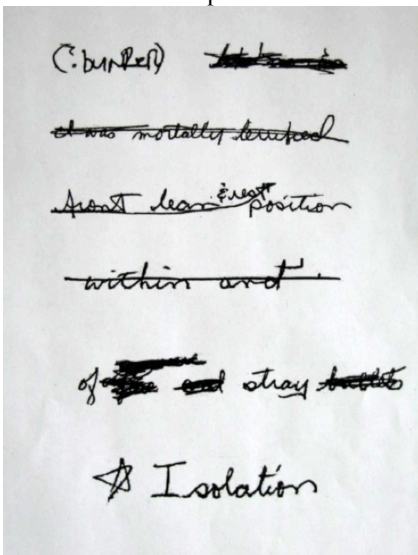 (:bUNKER)
it was mortally terrified
front lean & rest position
within and
of and stray bullets
☆ Isolation